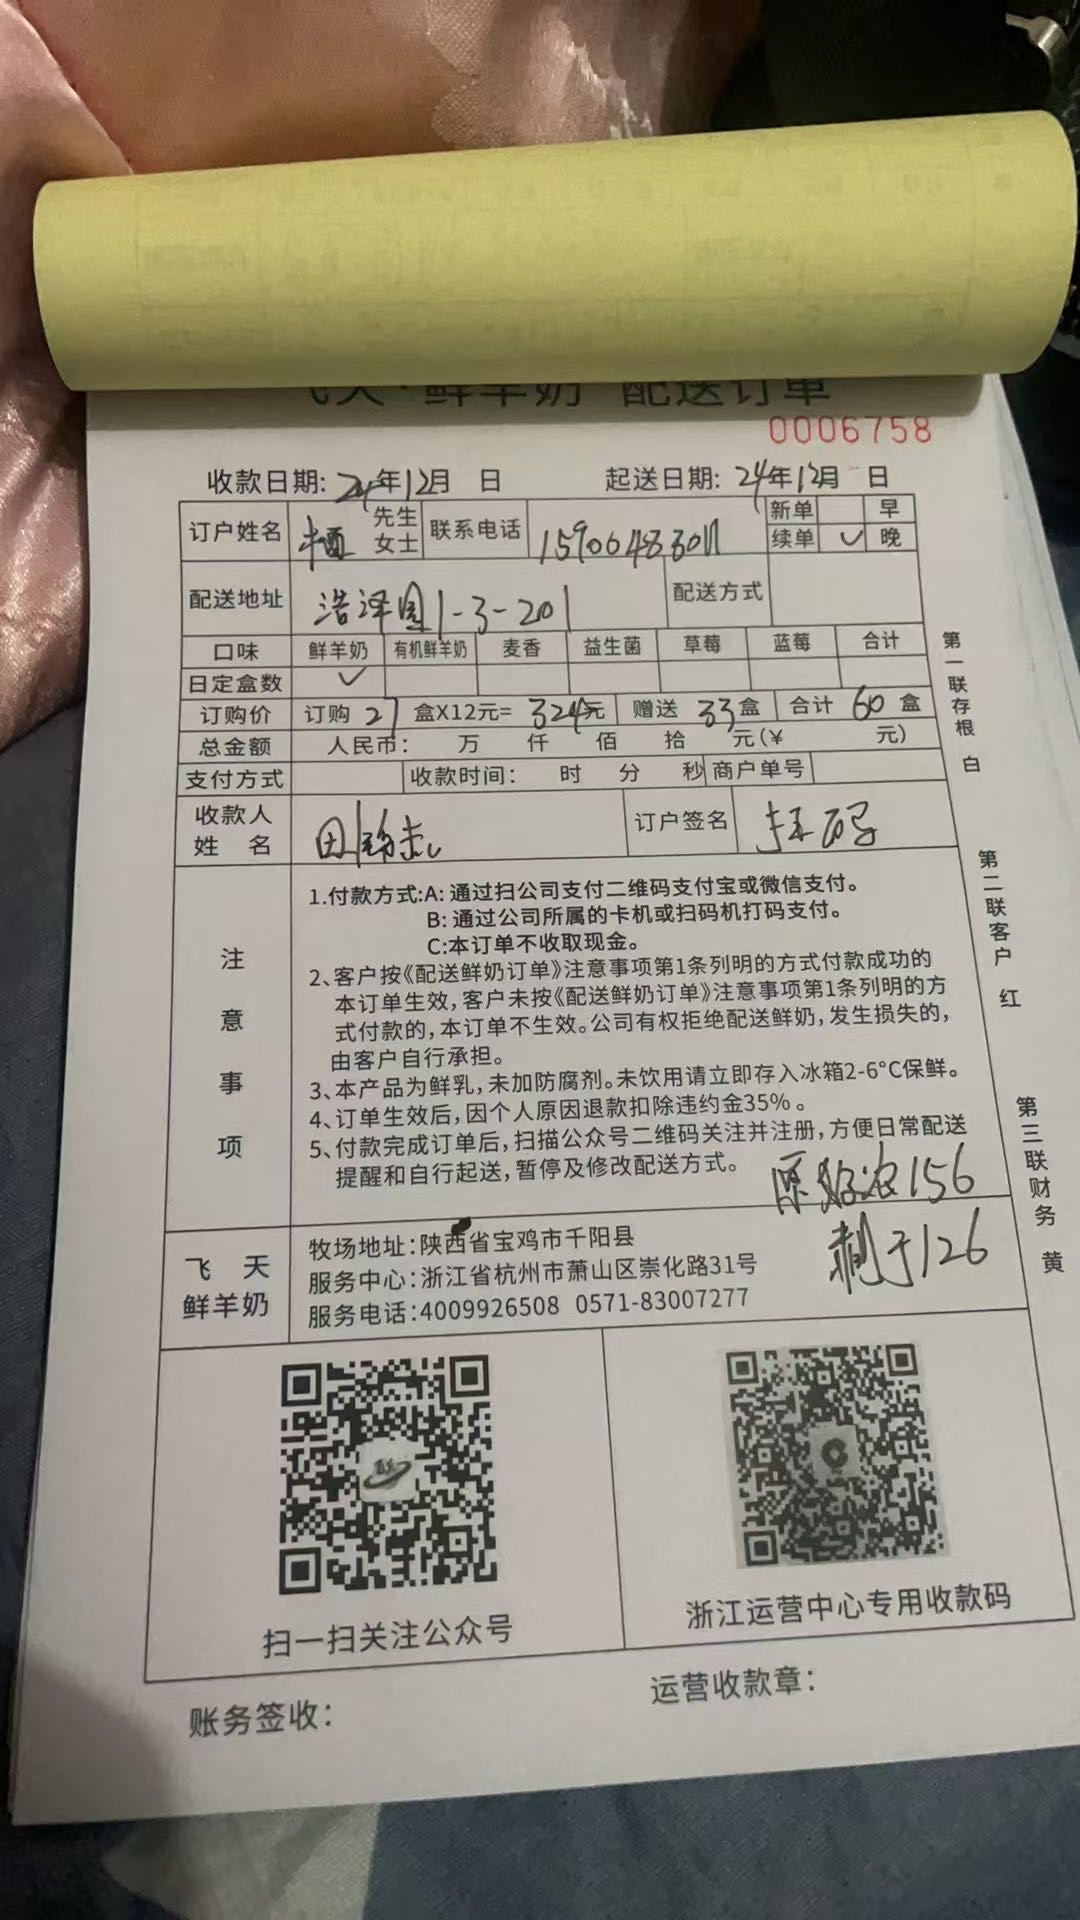 飞天·鲜羊奶 配送订单
0006758
收款日期: 24年12月 日 起送日期: 24年12月 日
订户姓名 先生 女士 联系电话 15900483011 新单 早
续单 ✓ 晚
配送地址 浩泽园1-3-201 配送方式
口味 鲜羊奶 有机鲜羊奶 麦香 益生菌 草莓 蓝莓 合计
日定盒数 ✓
订购价 订购 27 盒X12元= 324元 赠送 33盒 合计 60 盒
总金额 人民币: 万 仟 佰 拾 元(¥ 元)
支付方式 收款时间: 时 分 秒 商户单号
收款人
姓 名 订户签名
注意事项
1.付款方式:A: 通过扫公司支付二维码支付宝或微信支付。
B: 通过公司所属的卡机或扫码机打码支付。
C:本订单不收取现金。
2、客户按《配送鲜奶订单》注意事项第1条列明的方式付款成功的
本订单生效,客户未按《配送鲜奶订单》注意事项第1条列明的方
式付款的,本订单不生效。公司有权拒绝配送鲜奶,发生损失的,
由客户自行承担。
3、本产品为鲜乳,未加防腐剂。未饮用请立即存入冰箱2-6°C保鲜。
4、订单生效后,因个人原因退款扣除违约金35%。
5、付款完成订单后,扫描公众号二维码关注并注册,方便日常配送
提醒和自行起送,暂停及修改配送方式。
156
剩于126
飞 天
鲜羊奶
牧场地址:陕西省宝鸡市千阳县
服务中心:浙江省杭州市萧山区崇化路31号
服务电话:4009926508 0571-83007277
扫一扫关注公众号
浙江运营中心专用收款码
账务签收:
运营收款章:
第一联存根 白
第二联客户 红
第三联财务 黄